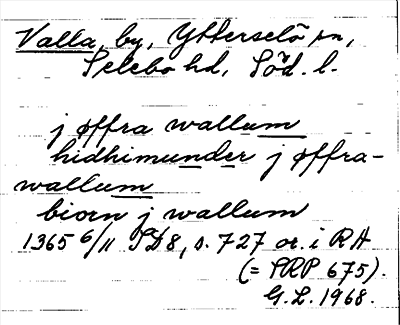 Valla, by, Ytterselö sn,
Selebo hd, Söd. l.
j øffra wallum
hidhimunder j øffra-
wallum
biorn j wallum
1365 6/11 SD8, s. 727 or. i RA
(= SRP 675).
G.L. 1968.